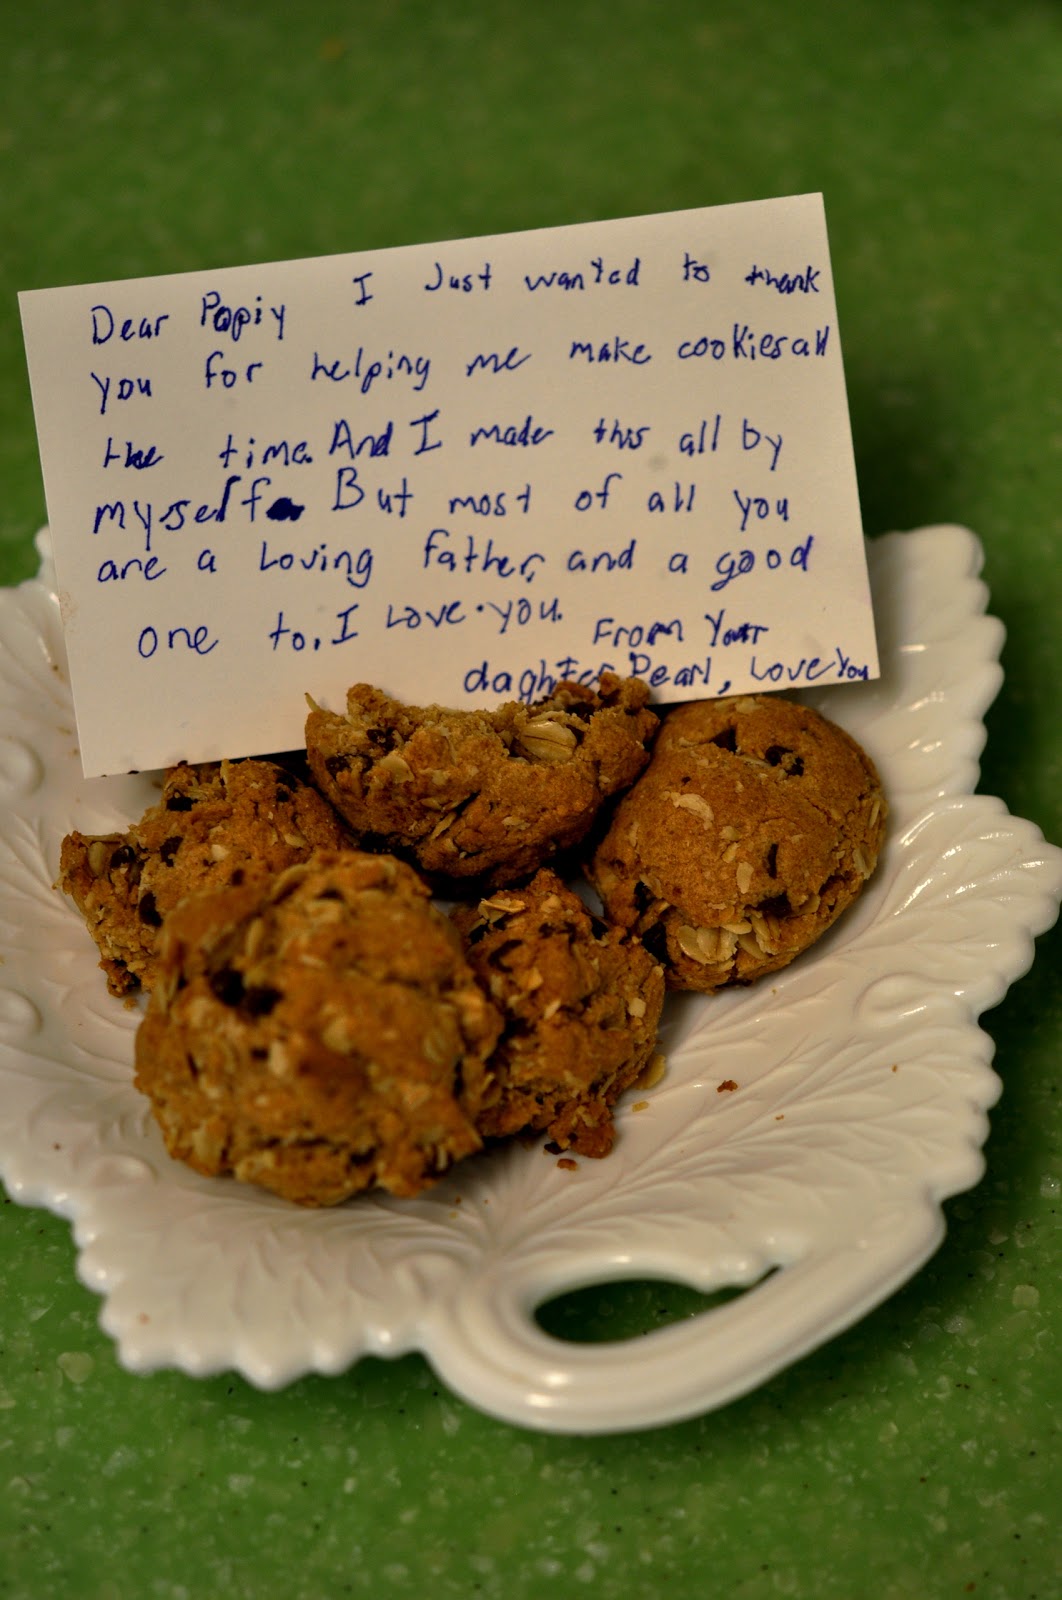 Dear Papiy I Just wanted to thank
you for helping me make cookies all
the time. And I made this all by
myself. But most of all you
are a Loving father, and a good
one to. I Love you.
From Your
daghter Pearl, Love You